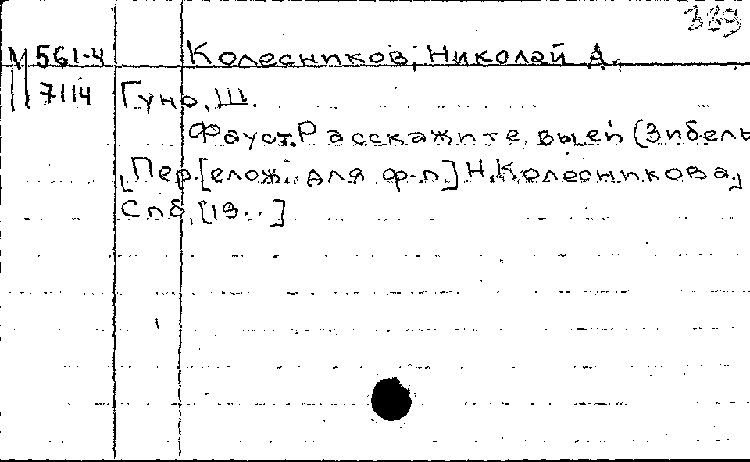 389
М 561-4 Колесников, Николай А.
7114 Гуно, Ш.
Фауст. Расскажите вы ей (Зибель
Пер.[елож. для ф-п.] Н. Колесникова,
Спб, [19..]